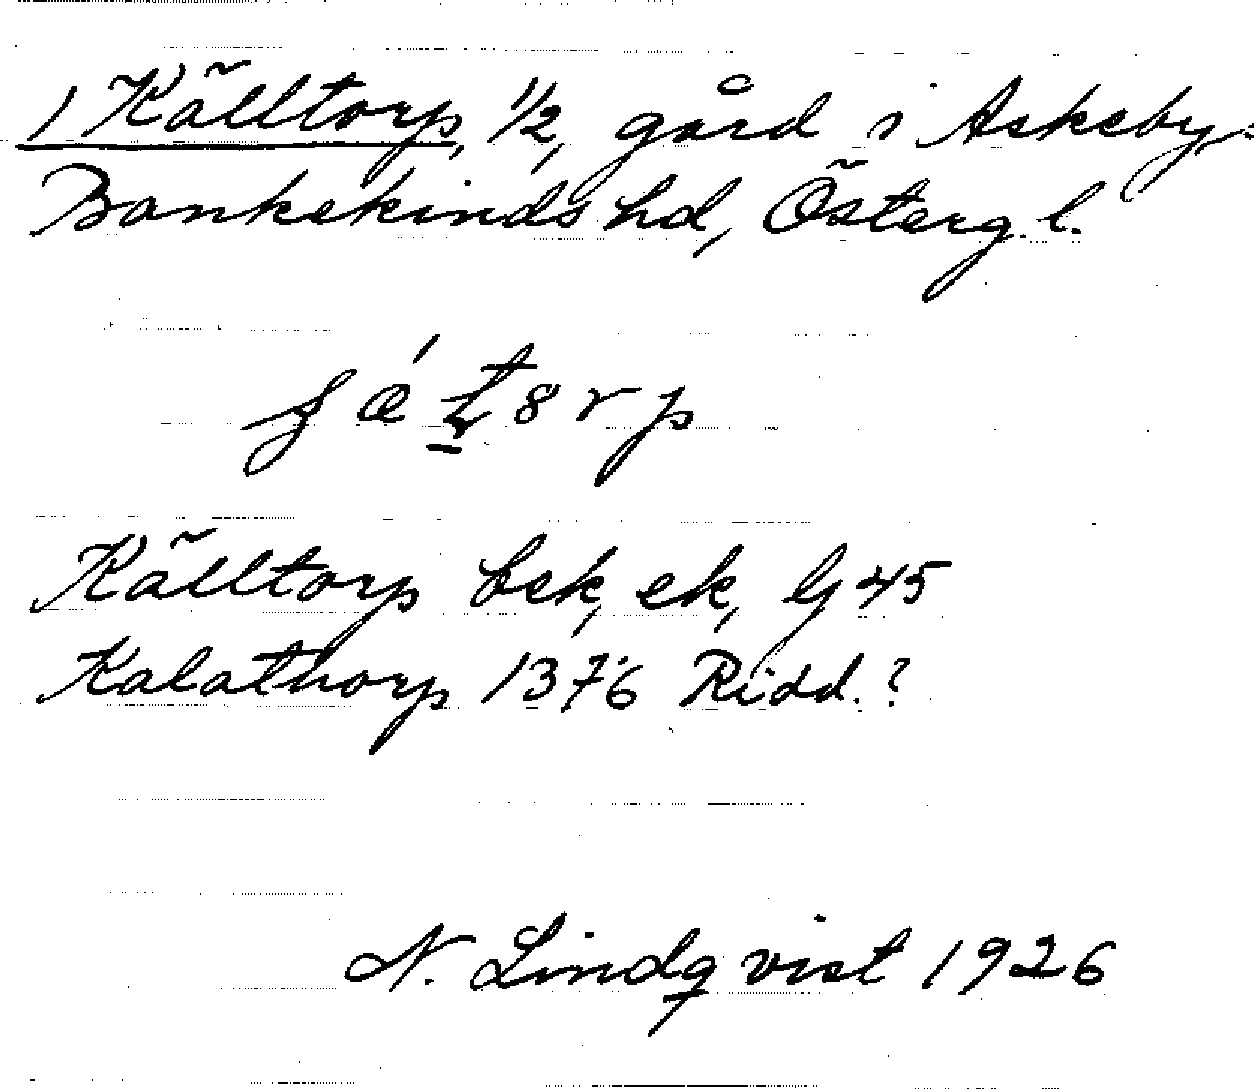 1 Källtorp, 1/2, gård i Askeby,
Bankekinds hd, Österg. l.
Källtorp bsk, ek, Gj 45
Kalathorp 1376 Ridd.?
N. Lindqvist 1926